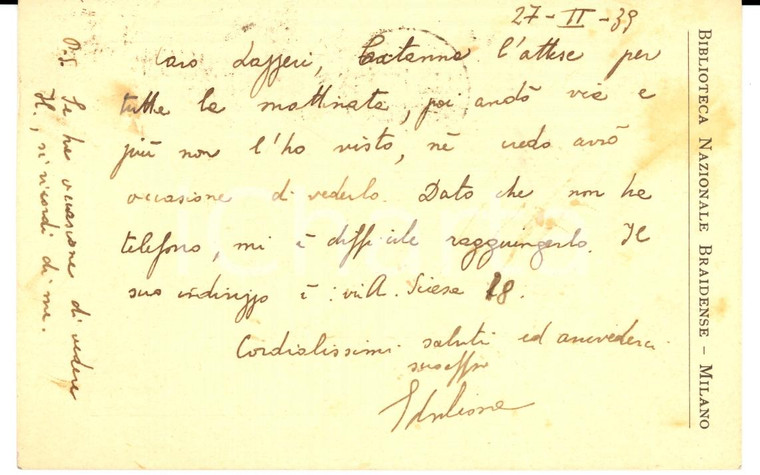 27-II-39
Caro Lazzeri, Cantanna l'attese per
tutta la mattinata, poi andò via e
più non l'ho visto, nè credo avrò
occasione di vederlo. Dato che non ha
telefono, mi è difficile raggiungerlo. Il
suo indirizzo è: via A. Sciesa 18.
Cordialissimi saluti ed arrivederci
suo aff/mo
P.S. Se ha occasione di vedere
H., si ricordi di me.
BIBLIOTECA NAZIONALE BRAIDENSE – MILANO